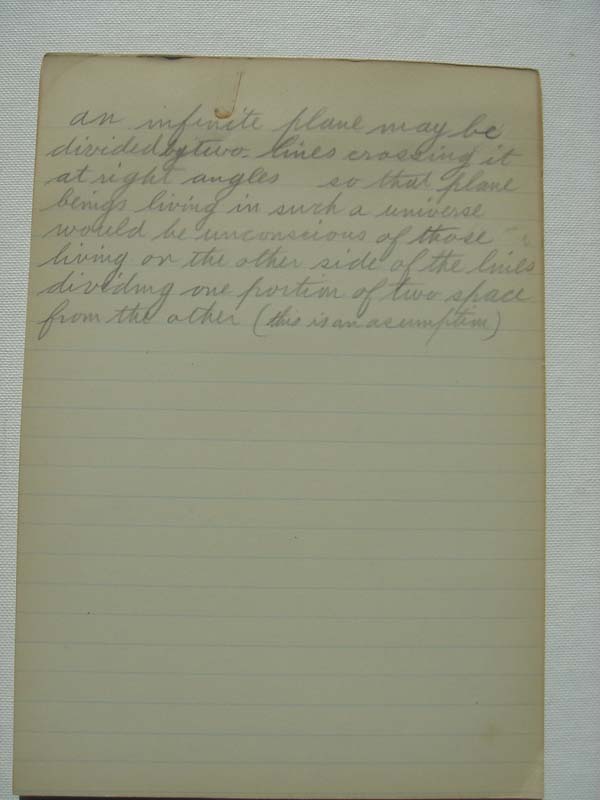 an infinite plane may be
divided by two lines crossing it
at right angles so that plane
beings living in such a universe
would be unconscious of those
living on the other side of the lines
dividing one portion of two space
from the other (this is an asumption)